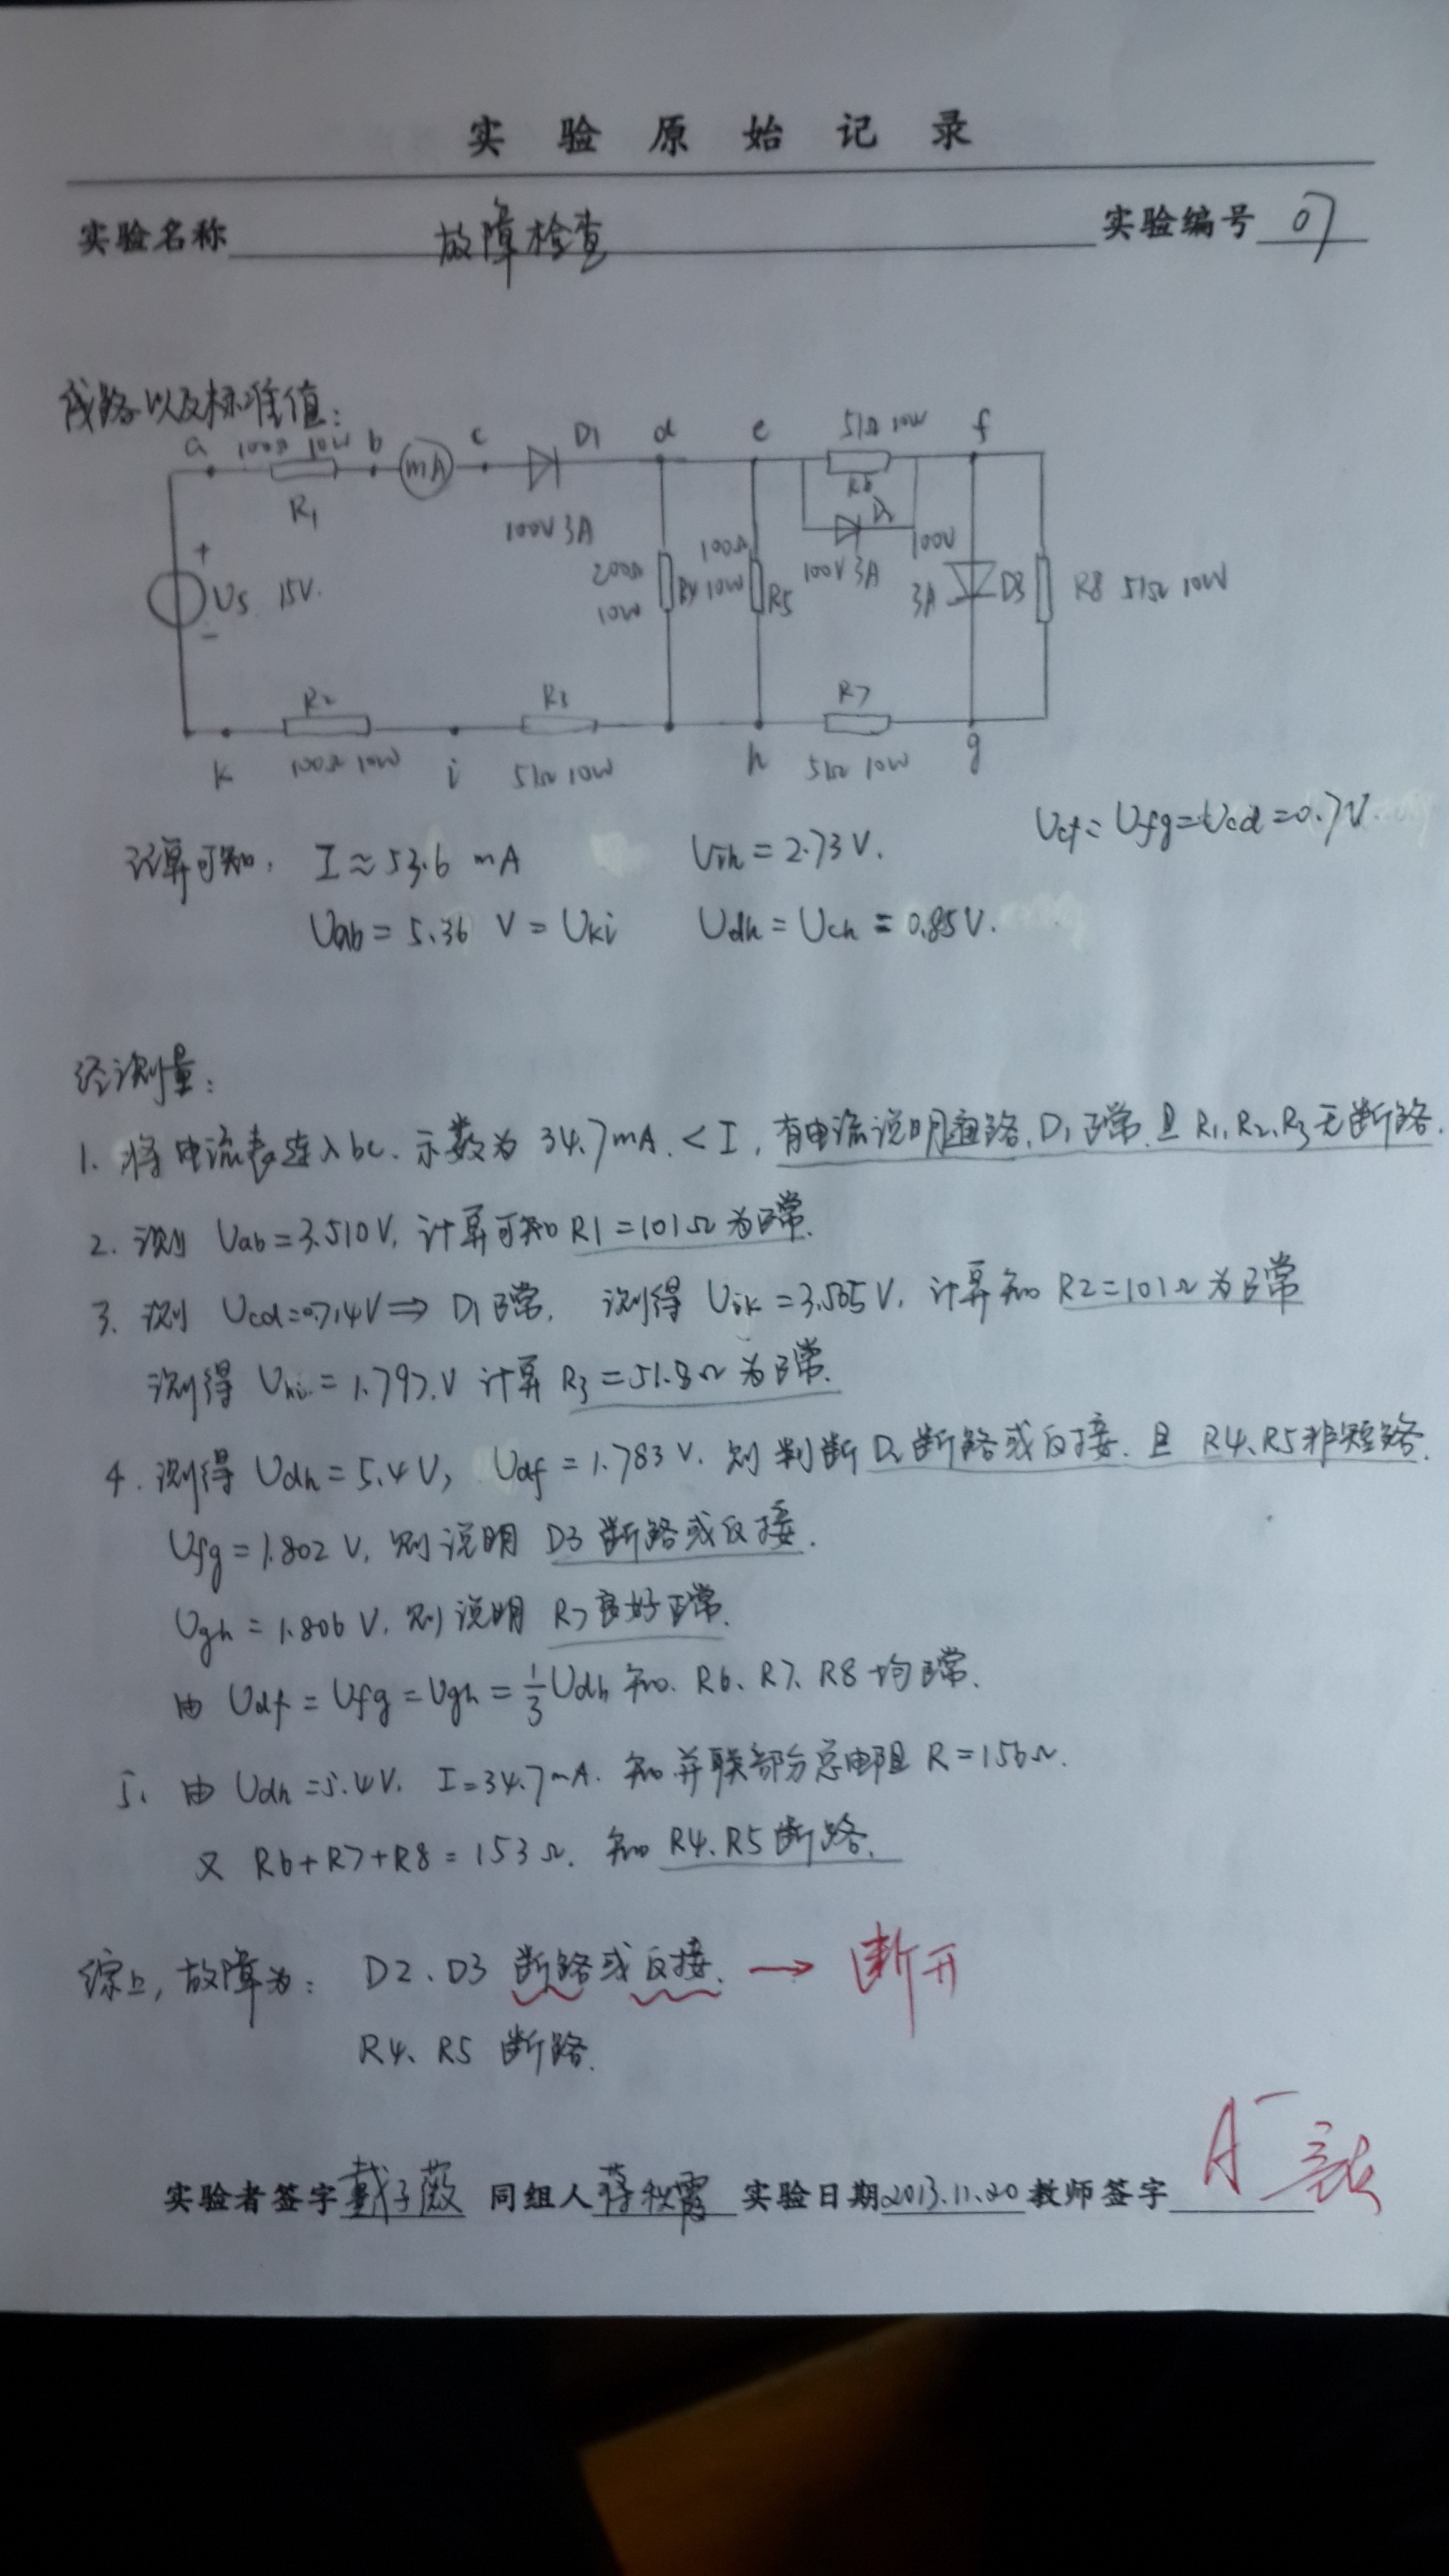 实验原始记录
实验名称 故障检查 实验编号 07
线路以及标准值:
a 100Ω 10W b c D1 d e 51Ω 10W f
mA
R1 R6
100V 3A D2
+ 100Ω 100V 3A 100V
US 15V. 200Ω 10W R4 10W R5 3A D3 R8 51Ω 10W
-
R2 R3 R7
k 100Ω 10W i 51Ω 10W h 51Ω 10W g
计算可知, I≈53.6 mA Uih=2.73V. Uef=Ufg=Ucd=0.7V.
Uab=5.36 V=Uki Udh=Ueh=0.85V.
经测量:
1. 将电流表连入bc. 示数为34.7mA.<I, 有电流说明通路, D1正常. 且R1、R2、R3无断路.
2. 测 Uab=3.510V, 计算可知R1=101Ω为正常.
3. 测 Ucd=0.714V⇒D1正常. 测得 Uik=3.505V, 计算知 R2=101Ω为正常
测得 Uhi=1.797.V 计算 R3=51.8Ω为正常.
4. 测得 Udh=5.4V, Udf=1.783V. 则判断D2断路或反接. 且 R4、R5非短路.
Ufg=1.802 V, 则说明 D3断路或反接.
Ugh=1.806 V, 则说明 R7良好正常.
由 Udf=Ufg=Ugh=1/3Udh 知. R6、R7、R8均正常.
5. 由 Udh=5.4V. I=34.7mA. 知并联部分总电阻R=156Ω.
又 R6+R7+R8=153Ω. 知 R4、R5断路.
综上, 故障为: D2、D3 断路或反接. → 断开
R4、R5 断路.
实验者签字 戴子薇 同组人 蒋秋霞 实验日期 2013.11.20 教师签字 A⁻